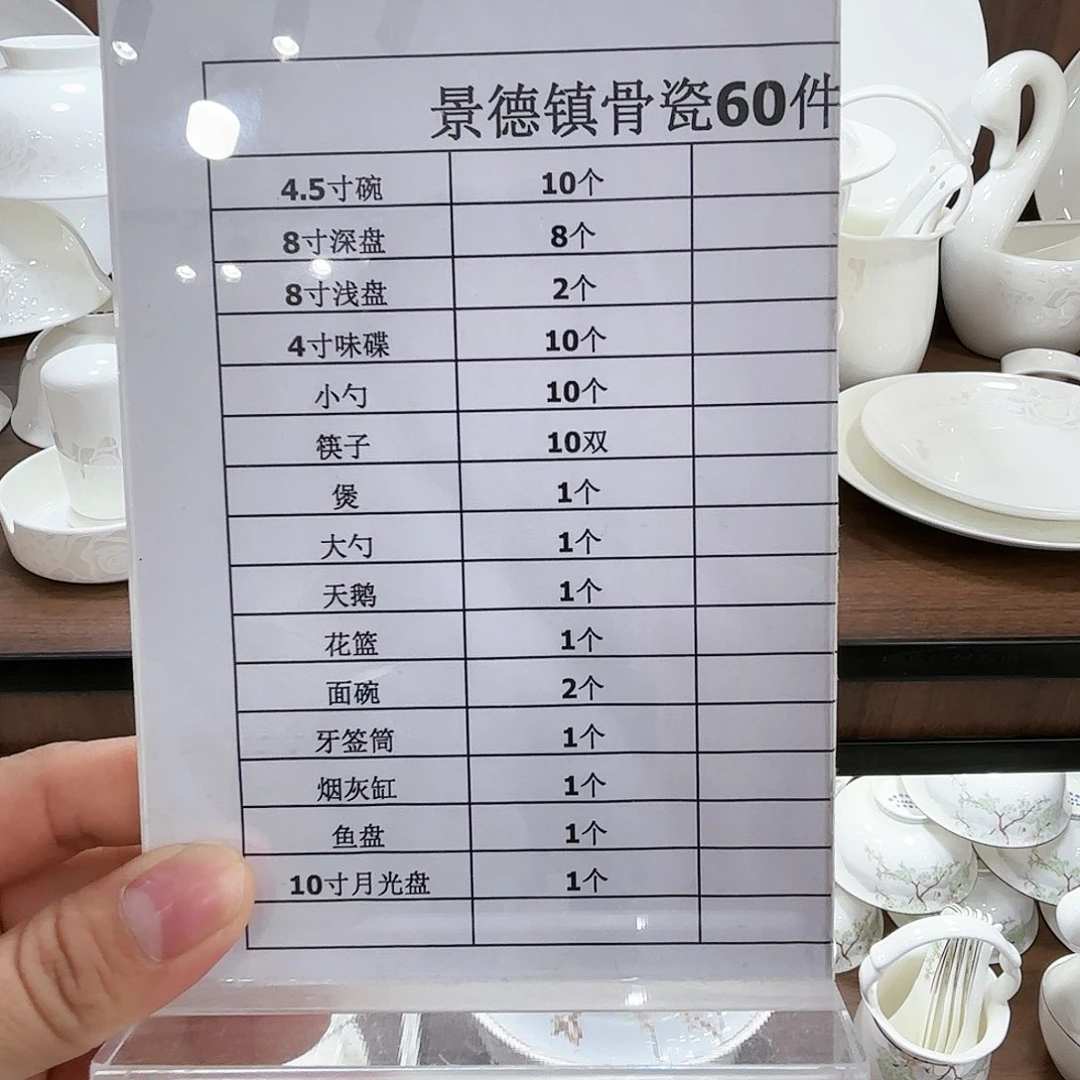 景德镇骨瓷60件
4.5寸碗 10个
8寸深盘 8个
8寸浅盘 2个
4寸味碟 10个
小勺 10个
筷子 10双
煲 1个
大勺 1个
天鹅 1个
花篮 1个
面碗 2个
牙签筒 1个
烟灰缸 1个
鱼盘 1个
10寸月光盘 1个